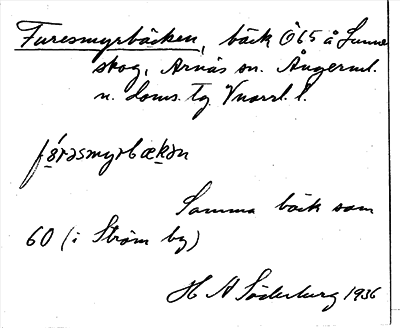 Furesmyrbäcken, bäck Ö65 å Sunne
skog, Arnäs sn. Ångerml.
n. doms. Tg Vnorrl. l.
fúrəsmyrbækən
Samma bäck som
60 (i Ström by)
H A Söderburg 1936